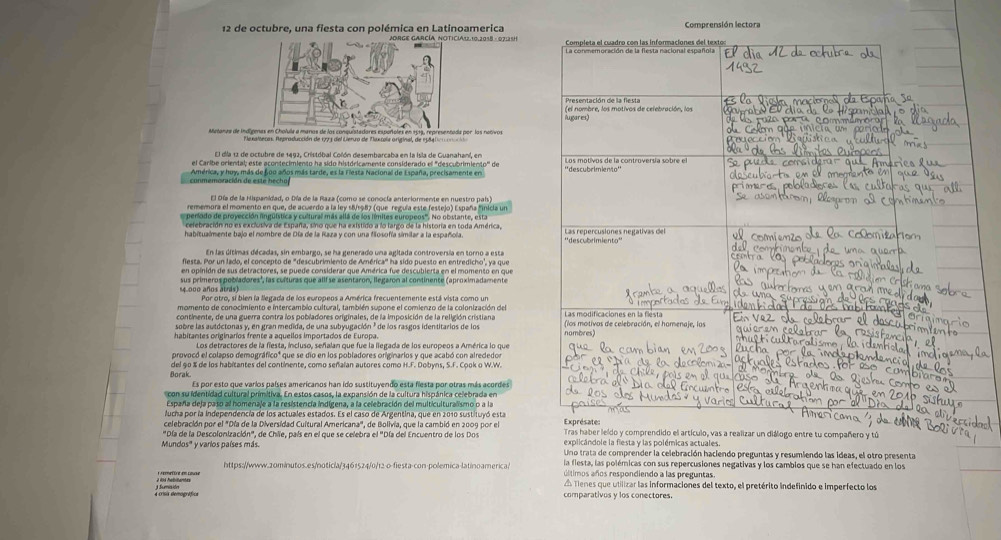 12 de octubre, una fiesta con polémica en Latinoamerica
JORGE GARCÍA NOTICIA
Matanza de indígenas en Cholula a manos de los conquistadores españoles en 1519, representada por los nativos
Tlaxcaltecas. Reproducción de 1773 del Lienzo de Tlaxcala original, de 1584
El día 12 de octubre de 1492, Cristóbal Colón desembarcaba en la isla de Guanahaní, en
el Caribe oriental; este acontecimiento ha sido históricamente considerado el "descubrimiento" de
América, y hoy, más de 500 años más tarde, es la Fiesta Nacional de España, precisamente en
conmemoración de este hecho
El Día de la Hispanidad, o Día de la Raza (como se conocía anteriormente en nuestro país)
rememora el momento en que, de acuerdo a la ley 18/1987 (que regula este festejo) España "inicia un
periodo de proyección lingüística y cultural más allá de los límites europeos". No obstante, esta
celebración no es exclusiva de España, sino que ha existido a lo largo de la historia en toda América,
habitualmente bajo el nombre de Día de la Raza y con una filosofía similar a la española.
En las últimas décadas, sin embargo, se ha generado una agitada controversia en torno a esta
fiesta. Por un lado, el concepto de "descubrimiento de América" ha sido puesto en entredicho¹, ya que
en opinión de sus detractores, se puede considerar que América fue descubierta en el momento en que
sus primeros pobladores², las culturas que allí se asentaron, llegaron al continente (aproximadamente
14.000 años atrás)
Por otro, si bien la llegada de los europeos a América frecuentemente está vista como un
momento de conocimiento e intercambio cultural, también supone el comienzo de la colonización del
continente, de una guerra contra los pobladores originales, de la imposición de la religión cristiana
sobre las autóctonas y, en gran medida, de una subyugación ³ de los rasgos identitarios de los
habitantes originarios frente a aquellos importados de Europa.
Los detractores de la fiesta, incluso, señalan que fue la llegada de los europeos a América lo que
provocó el colapso demográfico⁴ que se dio en los pobladores originarios y que acabó con alrededor
del 90 % de los habitantes del continente, como señalan autores como H.F. Dobyns, S.F. Cook o W.W.
Borak.
Es por esto que varios países americanos han ido sustituyendo esta fiesta por otras más acordes
con su identidad cultural primitiva. En estos casos, la expansión de la cultura hispánica celebrada en
España deja paso al homenaje a la resistencia indígena, a la celebración del multiculturalismo o a la
lucha por la independencia de los actuales estados. Es el caso de Argentina, que en 2010 sustituyó esta
celebración por el "Día de la Diversidad Cultural Americana", de Bolivia, que la cambió en 2009 por el
"Día de la Descolonización", de Chile, país en el que se celebra el "Día del Encuentro de los Dos
Mundos" y varios países más.
https://www.20minutos.es/noticia/3461524/0/12-o-fiesta-con-polemica-latinoamerica/
2 los habitantes
3 Sumisión
4 crisis demográfica
Comprensión lectora
Completa el cuadro con las informaciones del texto:
La conmemoración de la fiesta nacional española
El dia 12 de octubre de
1492
Presentación de la fiesta
(el nombre, los motivos de celebración, los
lugares)
Es la fiesta nacional de España se
llamaba El dia de la Hispanidad o dia
de la raza para commemorar la llegada
de Colon que inicia un periodo de
proyeccion liguistica y cultural mas
alla de los limites europeos
Los motivos de la controversia sobre el
"descubrimiento"
se puede considerar que Americes fue
descubierta en el momento en que sus
primeros pobladores las culturas que alli
se asentaron, llegaron al continento
Las repercusiones negativas del
"descubrimiento"
el comienzo de la colonization
del continente, de una guerra
contra los pobladores originales, de
la imposition de la religion cristiana sobre
las autoctonas y en gran medidad,
de una supresion de los rasgos
identidad de los habitantes originario
frente a aquellos
importados de Europe
Las modificaciones en la fiesta
(los motivos de celebración, el homenaje, los
nombres)
En vez de celebrar el descubrimiento
quieren celebrar la resistencia, el
multiculturalismo, la identidad indigena, la
que la cambian en 2009 lucha por la independencia de los
por el "Dia de la decoloniza- actuales estados. Por eso cambiaron
cion", de Chile, pais en el que el nombre de la fiesta como es el
celebra el "Dia del Encuentro caso de Argentina que en 2010 sustuyo
de los dos Mundos" y varios esta celebration por el "Dia de la diversidad
paises mas Cultural Americana", de Bolivia,
Exprésate:
Tras haber leído y comprendido el artículo, vas a realizar un diálogo entre tu compañero y tú
explicándole la fiesta y las polémicas actuales.
Uno trata de comprender la celebración haciendo preguntas y resumiendo las ideas, el otro presenta
la fiesta, las polémicas con sus repercusiones negativas y los cambios que se han efectuado en los
últimos años respondiendo a las preguntas.
⚠ Tienes que utilizar las informaciones del texto, el pretérito indefinido e imperfecto los
comparativos y los conectores.